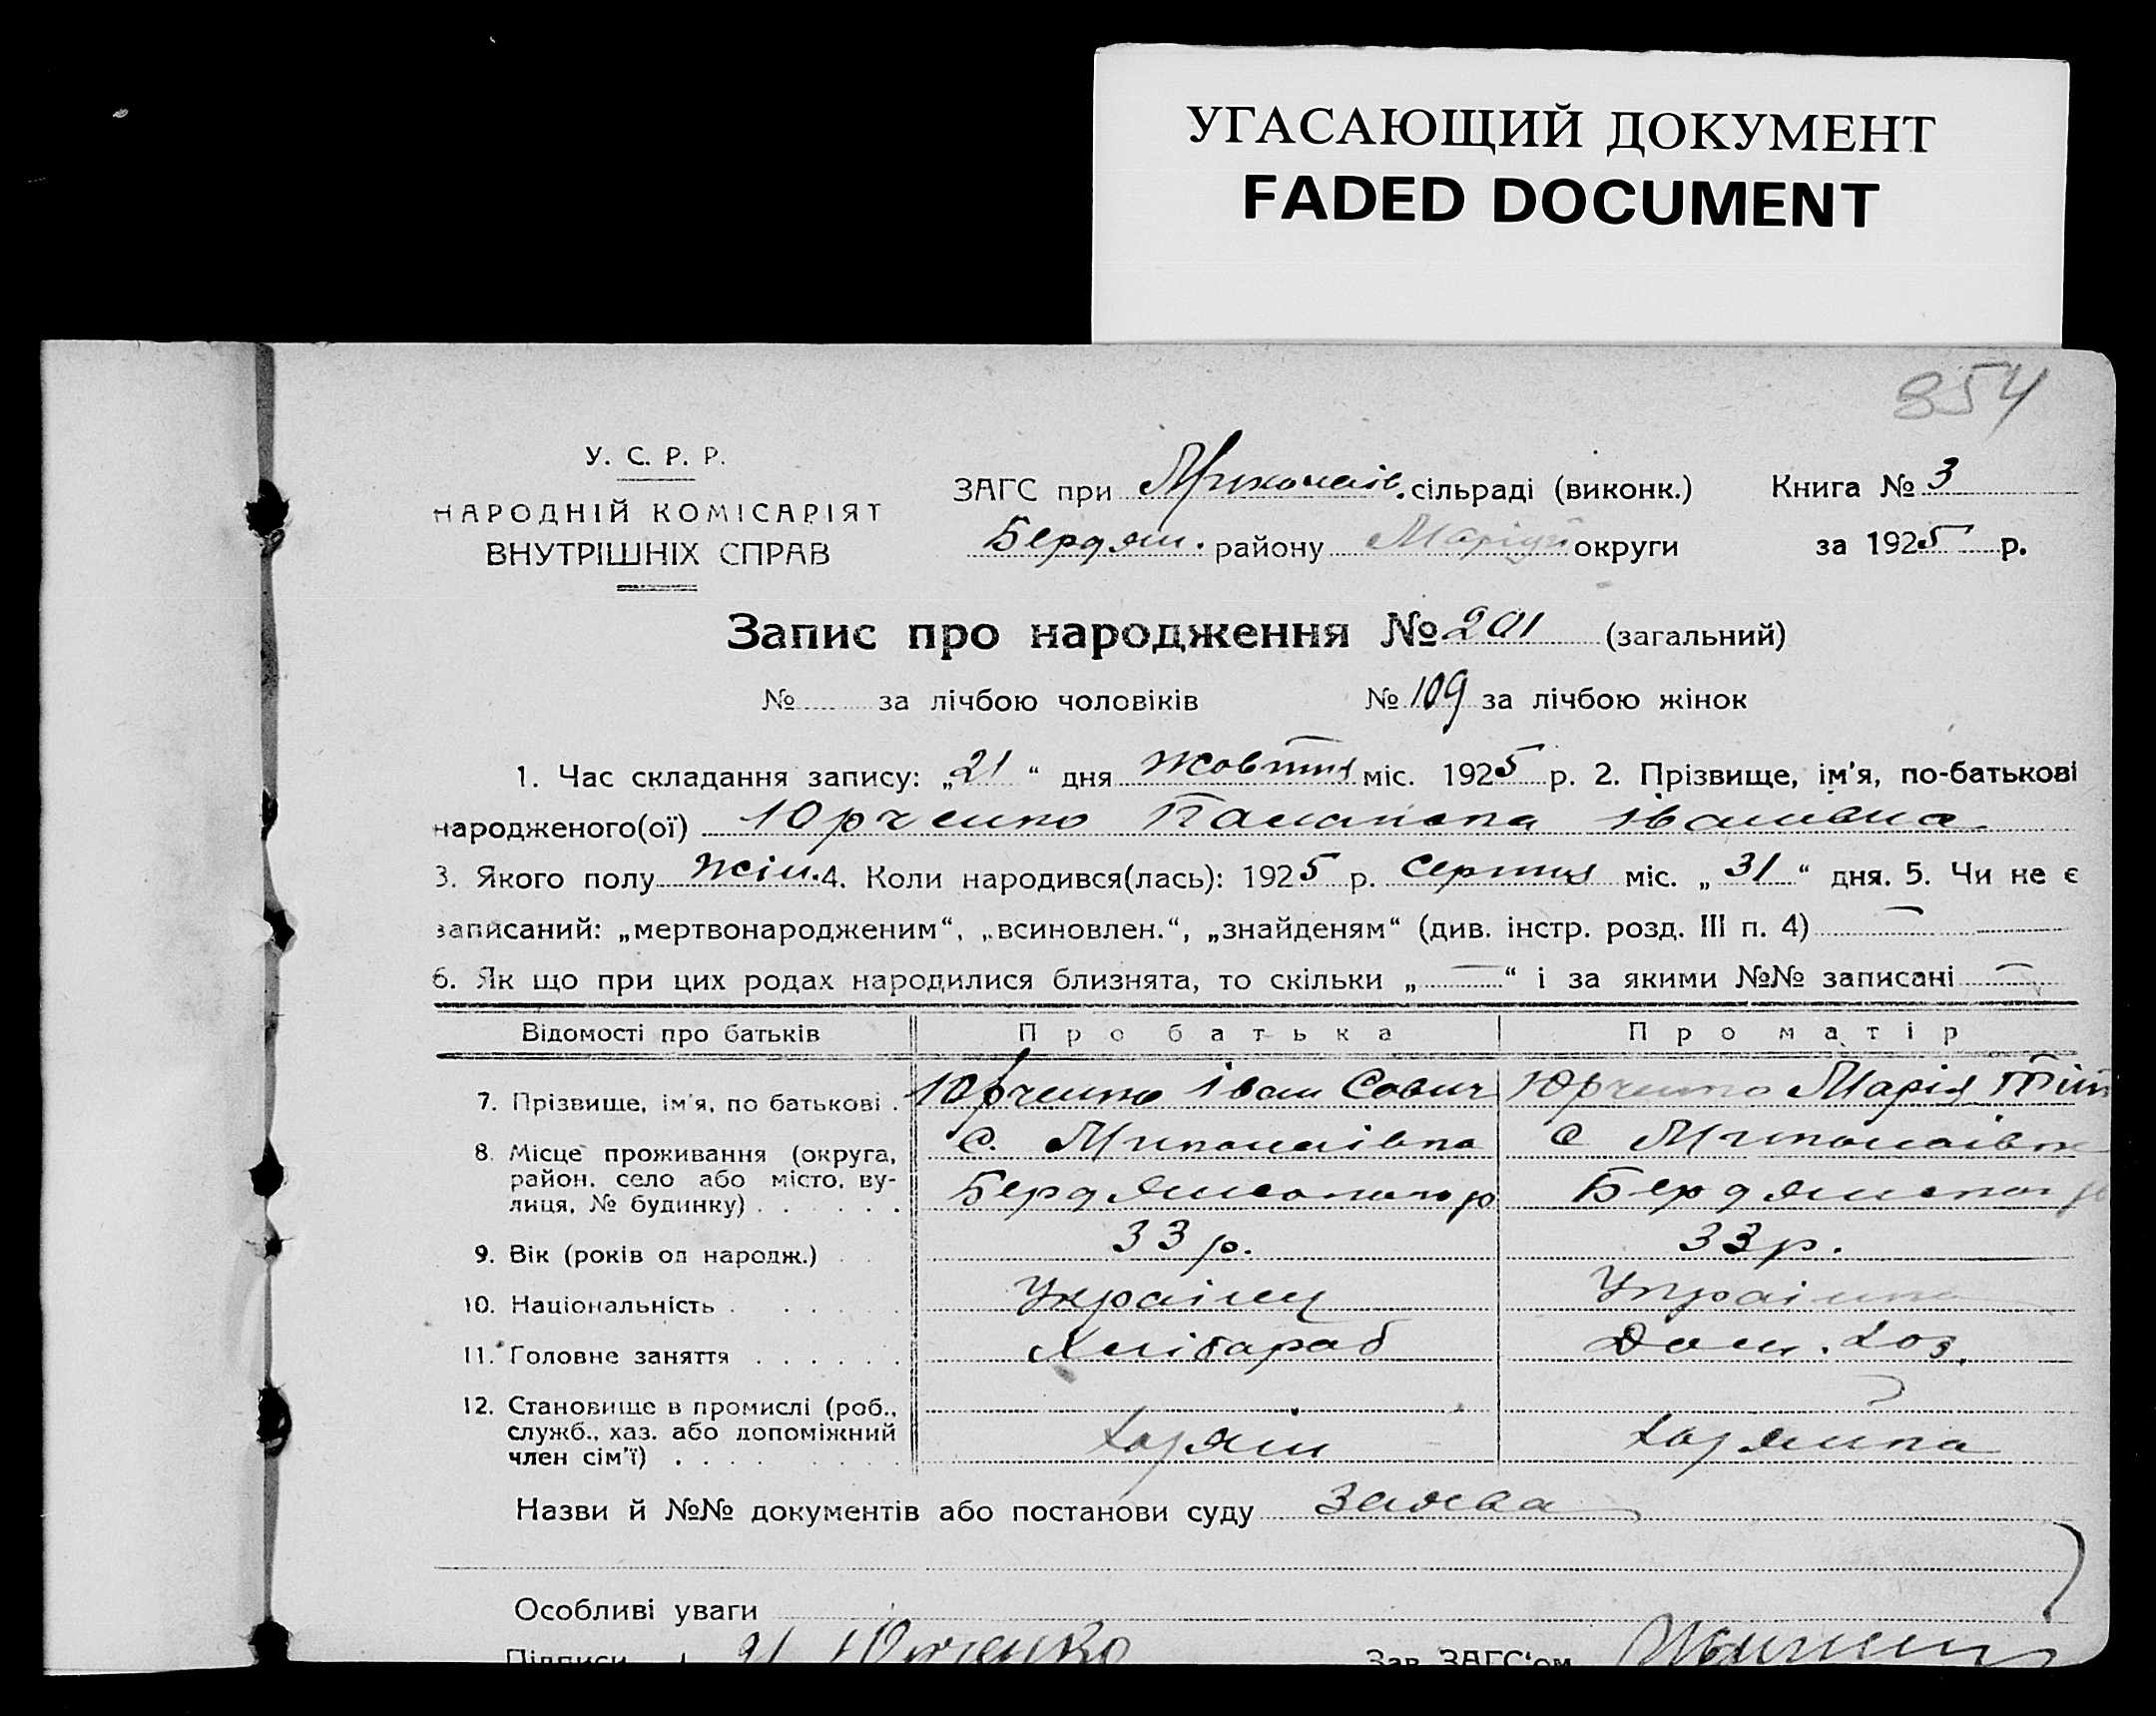 УГАСАЮЩИЙ ДОКУМЕНТ
FADED DOCUMENT
854
У. С. Р. Р.
НАРОДНІЙ КОМІСАРІЯТ
ВНУТРІШНІХ СПРАВ
ЗАГС при Миколаїв. сільраді (виконк.) Книга № 3
Бердян. району Маріуп округи за 1925 р.
Запис про народження № 201 (загальний)
№ за лічбою чоловіків № 109 за лічбою жінок
1. Час складання запису: „21“ дня жовтня міс. 1925 р. 2. Прізвище, ім'я, по-батькові
народженого(ої) Юрченко Іванівна
3. Якого полу жін. 4. Коли народився(лась): 1925 р. серпня міс. „31“ дня. 5. Чи не є
записаний: „мертвонародженим“, „всиновлен.“, „знайденям“ (див. інстр. розд. III п. 4) —
6. Як що при цих родах народилися близнята, то скільки „—“ і за якими №№ записані —
Відомості про батьків Про батька Про матір
7. Прізвище, ім'я, по батькові . Юрченко Іван Савич Юрченко Марія
8. Місце проживання (округа, с. Миколаївка с Миколаївк
район, село або місто, ву-
лиця, № будинку) . . . . . . Бердянського р Бердянськ р
9. Вік (років од народж.) 33 р. 33 р.
10. Національність . . . . . Українец Українка
11. Головне заняття . . . . . . Хлібороб Дом. Хоз.
12. Становище в промислі (роб.,
служб., хаз. або допоміжний Хазяин Хазяйка
член сім'ї) . . . .
Назви й №№ документів або постанови суду Заява
Особливі уваги
Підписи И Юрченко Зав. ЗАГС'ом